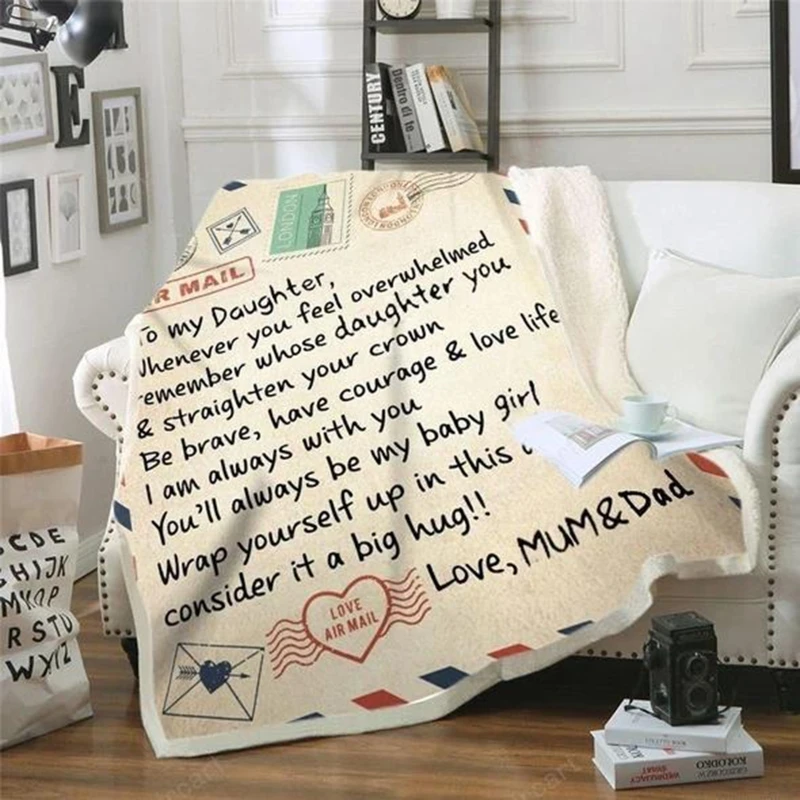 E
CENTURY
Dentro di te
LONDON
R MAIL
To my Daughter,
Whenever you feel overwhelmed
remember whose daughter you
& straighten your crown
Be brave, have courage & love life
I am always with you
You'll always be my baby girl
Wrap yourself up in this
consider it a big hug!!
Love, MUM&Dad
LOVE
AIR MAIL
CDE
HIJK
R STU
WXYZ
KOŁODKO